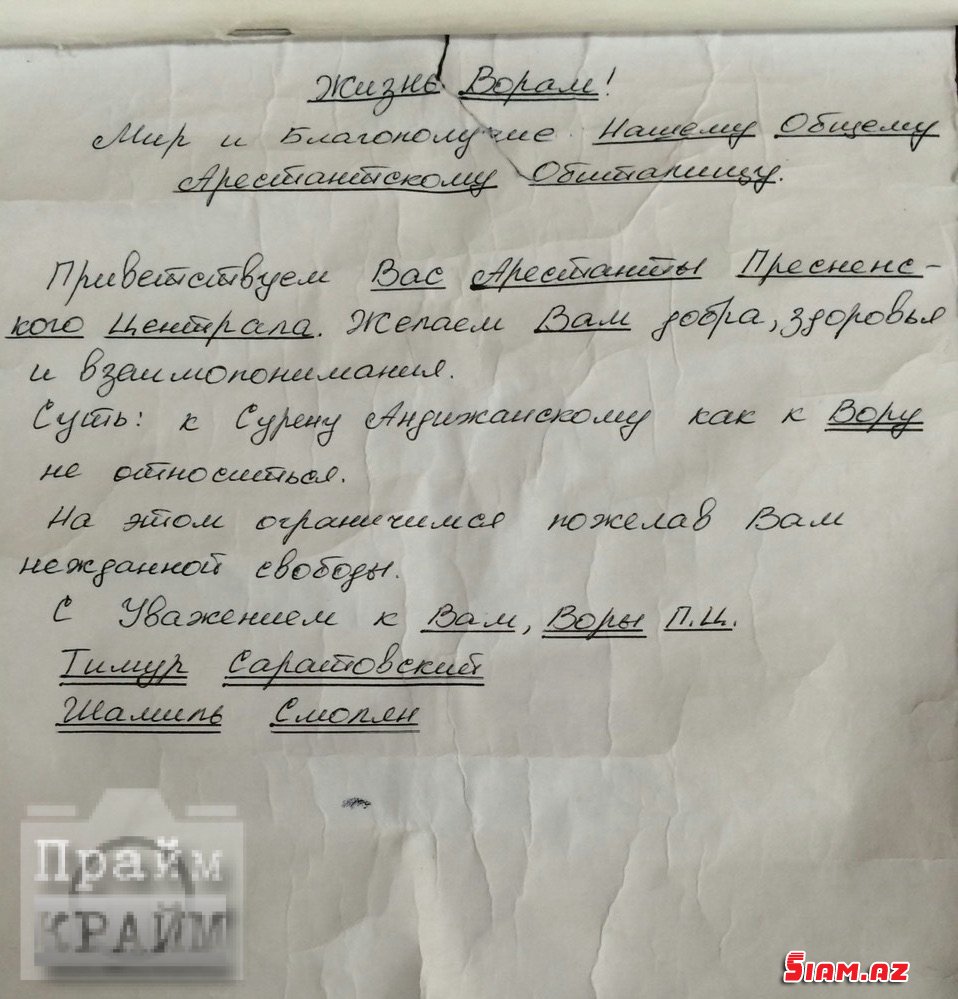 Жизнь Ворам!
Мир и Благополучие Нашему Общему
Арестантскому Обиталищу.
Приветствуем Вас Арестанты Пресненс-
кого Централа. Желаем Вам добра, здоровья
и взаимопонимания.
Суть: к Сурену Андижанскому как к Вору
не относиться.
На этом ограничимся пожелав Вам
нежданной свободы.
С Уважением к Вам, Воры П.Ц.
Тимур Саратовский
Шамиль Смолян
Прайм
КРАЙМ
SIAM.AZ